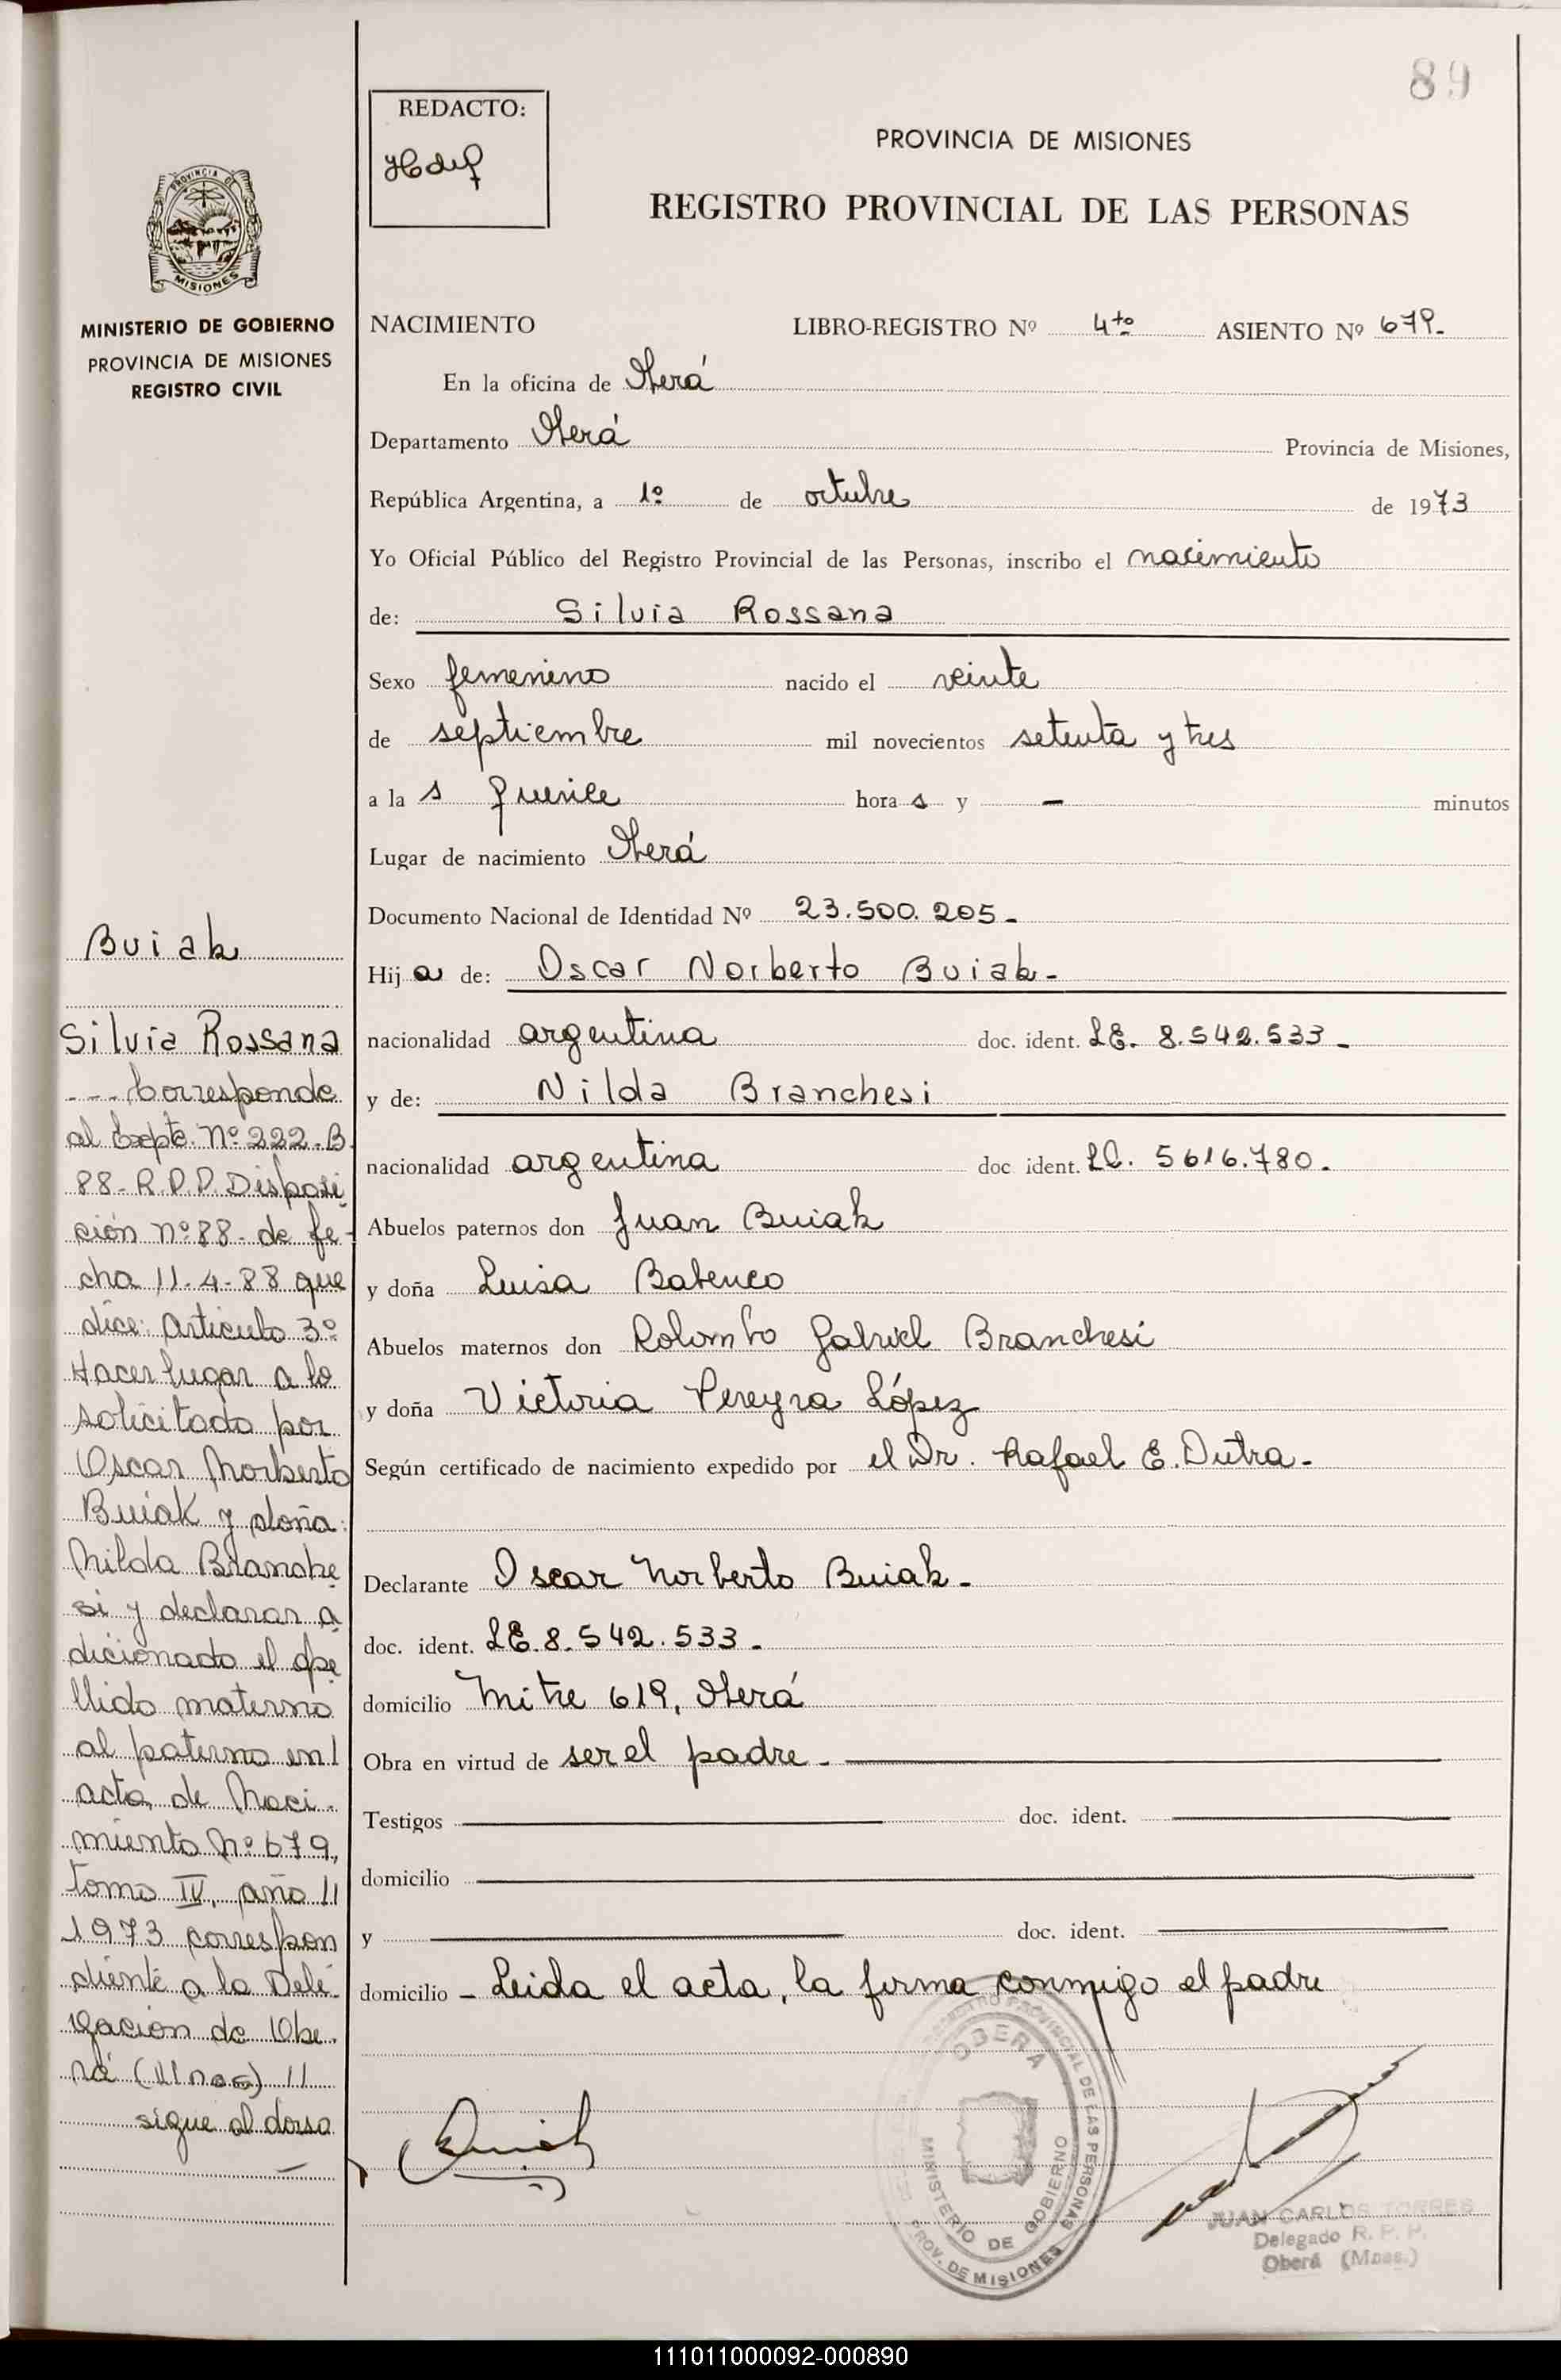 89
REDACTO:
PROVINCIA DE MISIONES
REGISTRO PROVINCIAL DE LAS PERSONAS
PROVINCIA DE
MISIONES
MINISTERIO DE GOBIERNO
PROVINCIA DE MISIONES
REGISTRO CIVIL
NACIMIENTO LIBRO-REGISTRO Nº 4to ASIENTO Nº 679.
En la oficina de Oberá
Departamento Oberá Provincia de Misiones,
República Argentina, a 1º de octubre de 1973
Yo Oficial Público del Registro Provincial de las Personas, inscribo el nacimiento
de: Silvia Rossana
Sexo femenino nacido el veinte
de septiembre mil novecientos setenta y tres
a la s quince hora s y — minutos
Lugar de nacimiento Oberá
Documento Nacional de Identidad Nº 23.500.205-
Hij a de: Oscar Norberto Buiak-
nacionalidad argentina doc. ident. LE. 8.542.533-
y de: Nilda Branchesi
nacionalidad argentina doc ident. LC. 5616.780.
Abuelos paternos don Juan Buiak
y doña Luisa Batenco
Abuelos maternos don Colombo Gabriel Branchesi
y doña Victoria Pereyra López
Según certificado de nacimiento expedido por el Dr. Rafael E. Dutra-
Declarante Oscar Norberto Buiak-
doc. ident. LE.8.542.533-
domicilio Mitre 619, Oberá
Obra en virtud de ser el padre-
Testigos doc. ident.
domicilio
y doc. ident.
domicilio - Leida el acta, la firma conmigo el padre
Buiak
Silvia Rossana
--- Corresponde
al Expte. Nº 222-B.
88-R.P.P. Disposi
ción nº 88- de fe-
cha 11-4-88 que
dice: Articulo 3º
Hacer lugar a lo
solicitado por
Oscar Norberto
Buiak y doña:
Nilda Branche
si y declarar a
dicionado el ape
llido materno
al paterno en/
acta de Naci-
miento Nº 679,
tomo IV, año //
1973 correspon
diente a la Dele
gación de Obe-
rá (Mnes) //
sigue al dorso
REGISTRO PROVINCIAL DE LAS PERSONAS
OBERA
MINISTERIO DE GOBIERNO
PROV. DE MISIONES
JUAN CARLOS TORRES
Delegado R. P. P.
Oberá (Mnes.)
111011000092-000890